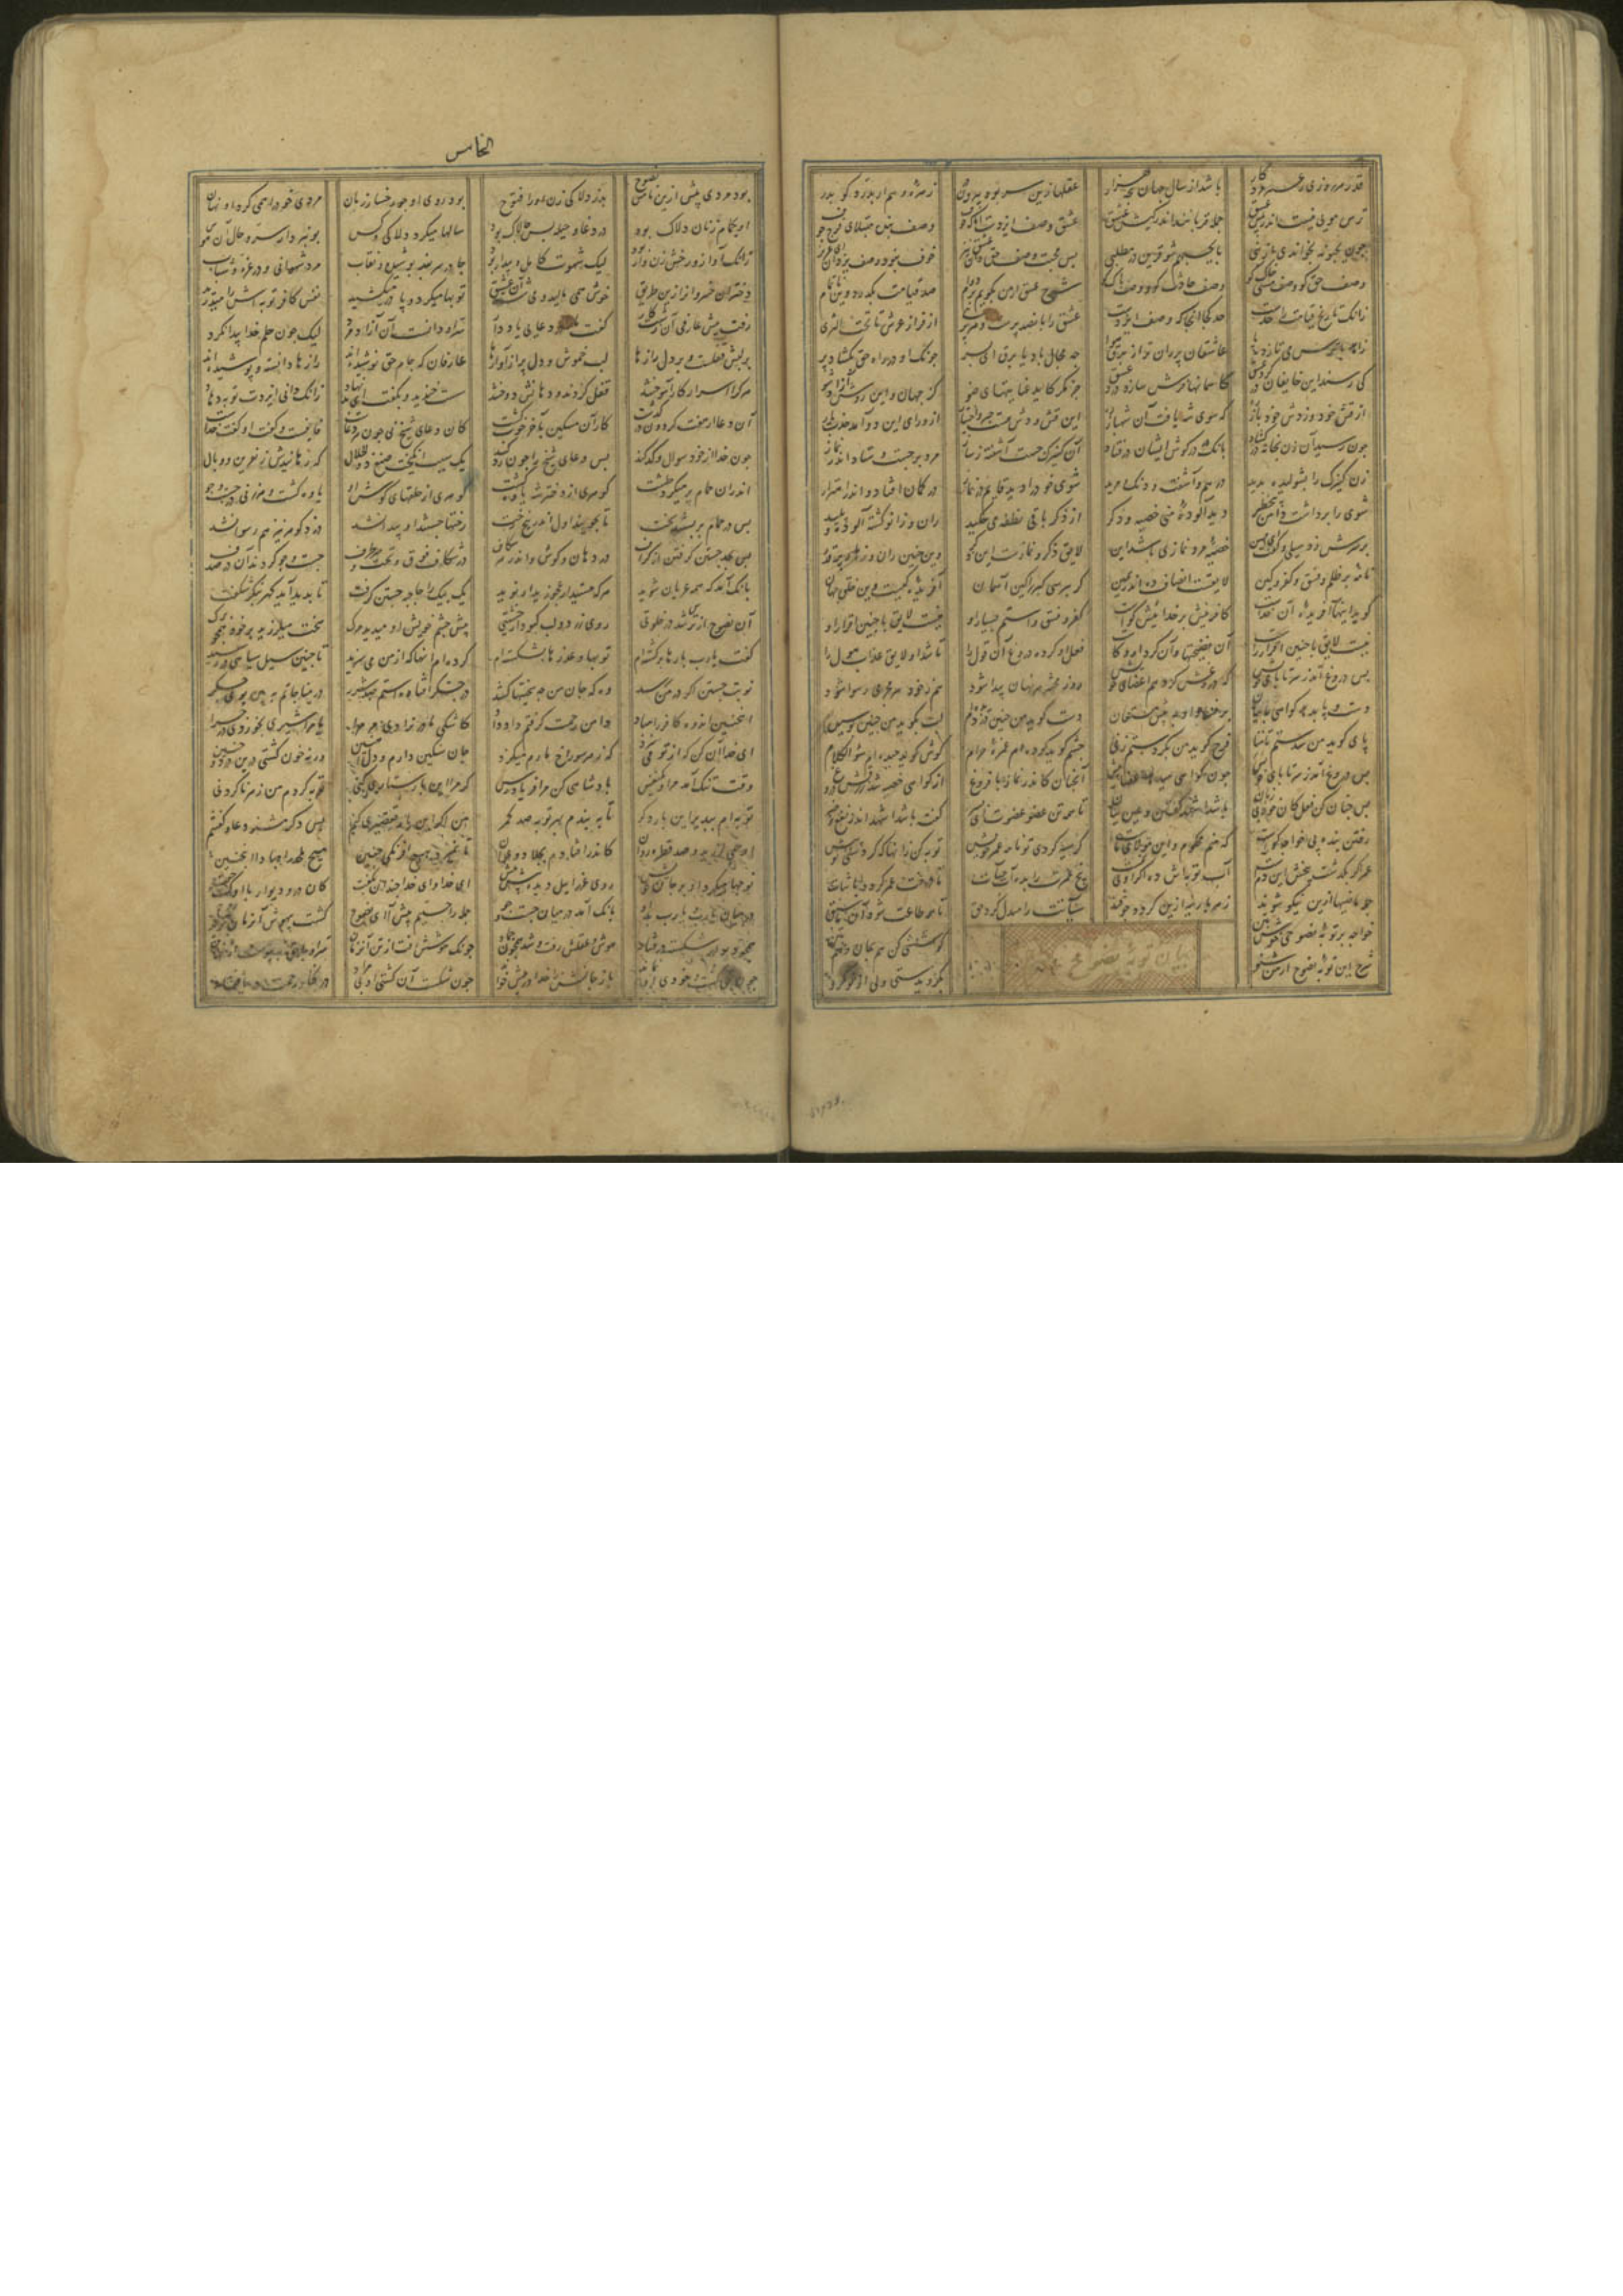 قدر هر روزی ز عمر مرد کار باشد از سال جهان پنجه هزار عقلها زین سر بود بیرون در زهره وهم ار بدرد کو بدر
ترس مویی نیست اندر پیش عشق جمله قربانند اندر کیش عشق عشق وصف ایزدست اما که خوف وصف بنده مبتلای فرج و جوف
چون یحبونه بخواندی در نبی با یحبهم شو قرین در مطلبی پس محبت وصف حق دان عشق نیز خوف نبود وصف یزدان ای عزیز
وصف حق کو وصف مشتی خاک کو وصف حادث کو و وصف پاک کو شرح عشق ار من بگویم بر دوام صد قیامت بگذرد وین ناتمام
زانک تاریخ قیامت را حدست حد کجا آنجا که وصف ایزدست عشق را پانصد پرست و هر پری از فراز عرش تا تحت الثری
زاهد با ترس می تازد بپا عاشقان پران تر از برق و هوا چه مجال باد یا برق ای پسر چونک او در راه حق بگشاد پر
کی رسند این خایفان در گرد عشق کاسمانها فرش سازد درد عشق جز مگر کاید عنایتهای ضو کز جهان و این روش آزاد شو
از قش خود وز دش خود باز ره که سوی شه یافت آن شهباز ره این قش و دش هست جبر و اختیار از ورای این دو آمد جذب یار
چون رسید آن زن بخانه در گشاد بانگ در گوش ایشان در فتاد آن کنیزک جست آشفته ز ساز مرد برجست و ستاد اندر نماز
زن کنیزک را پشولیده بدید درهم و آشفته و دنگ و مرید شوی خود را دید قایم در نماز در گمان افتاد و اندر اهتزاز
شوی را برداشت دامن بی خطر دید آلوده منی خصیه و ذکر از ذکر باقی نطفه می چکید ران و زانو گشته آلوده و پلید
بر سرش زد سیلی و گفت ای مهین خصیه مرد نمازی باشد این لایق ذکر و نمازست این ذکر وین چنین ران و زهار پر قذر
نامه پر ظلم و فسق و کفر و کین لایقست انصاف ده اندر یمین گر بپرسی گبر را کین آسمان آفریده کیست وین خلق جهان
گوید اینها آفریده آن خداست کافرینش بر خداییش گواست کفر و فسق و استم بسیار او هست لایق با چنین اقرار او
نیست لایق با چنین اقرار راست آن فضیحتها و آن کردار کاست فعل او کرده دروغ آن قول را تا شد او لایق عذاب هول را
پس دروغ آمد ز سر تا پای خویش که دروغش کرد هم اعضای خویش روز محشر هر نهان پیدا شود هم ز خود هر مجرمی رسوا شود
دست و پا بدهد گواهی با بیان بر فساد او به پیش مستعان دست گوید من چنین دزدیده ام لب بگوید من چنین بوسیده ام
پای گوید من شدستم تا منی فرج گوید من بکردستم زنی چشم گوید کرده ام غمزه حرام گوش گوید چیده ام سو الکلام
پس دروغ آمد ز سر تا پای خویش چون گواهی میدهد اعضای خویش آنچنان کاندر نماز با فروغ از گواهی خصیه شد زرقش دروغ
پس چنان کن فعل کان خود بی زبان باشد اشهد گفتن و عین بیان تا همه تن عضو عضوت ای پسر گفته باشد اشهد اندر نفع و ضر
رفتن بنده پی خواجه گواست که منم محکوم و این مولای ماست گر سیه کردی تو نامه عمر خویش توبه کن زانها که کردستی تو پیش
عمر اگر بگذشت بیخش این دمست آب توبه اش ده اگر او بی نمست بیخ عمرت را بده آب حیات تا درخت عمر گردد با ثبات
جمله ماضیها ازین نیکو شوند زهر پارینه ازین گردد چو قند سیآتت را مبدل کرد حق تا همه طاعت شود آن ما سبق
خواجه بر توبه نصوحی خوش بتن کوششی کن هم بجان و هم بتن
شرح این توبه نصوح از من شنو بگرویدستی ولی از نو گرو
بیان توبه نصوح
الخامس
بود مردی پیش ازین نامش نصوح بد ز دلاکی زن او را فتوح بود روی او چو رخسار زنان مردی خود را همی کرد او نهان
او بحمام زنان دلاک بود در دغا و حیله بس چالاک بود سالها میکرد دلاکی و کس بو نبرد از سر و حال آن هوس
زانک آواز و رخش زن وار بود لیک شهوت کامل و بیدار بود چادر و سربند پوشیده و نقاب مرد شهوانی و در غره شباب
دختران خسروان را زین طریق خوش همی مالید و می شست آن عشیق توبها میکرد و پا در میکشید نفس کافر توبه اش را میدرید
رفت پیش عارفی آن زشت کار گفت ما را در دعایی یاد دار سر او دانست آن آزاد مرد لیک چون حلم خدا پیدا نکرد
بر لبش قفلست و بر دل رازها لب خموش و دل پر از آوازها عارفان که جام حق نوشیده اند رازها دانسته و پوشیده اند
هرکرا اسرار کار آموختند قفل کردند و دهانش دوختند سست خندید و بگفت ای بد نهاد زانک دانی ایزدت توبه دهاد
آن دعا از هفت گردون در گذشت کار آن مسکین بآخر خوب گشت کان دعای شیخ نی چون هر دعاست فانیست و گفت او گفت خداست
چون خدا از خود سوال و کد کند پس دعای شیخ را چون رد کند یک سبب انگیخت صنع ذوالجلال که رهانیدش ز نفرین و وبال
اندران حمام پر میکرد طشت گوهری از دختر شه یاوه گشت گوهری از حلقهای گوش او یاوه گشت و هر زنی در جست و جو
پس در حمام بر بستند سخت تا بجویند اول اندر پیچ رخت رختها جستند او پیدا نشد دزد گوهر نیز هم رسوا نشد
پس بجد جستن گرفتن از گزاف در دهان و گوش و اندر هر شکاف در شکاف فوق و تحت و هر طرف جست و جو کردند آن در صدف
بانگ آمد که همه عریان شوید هر که هستید ار عجوز و ار نوید یک بیک را حاجبه جستن گرفت تا پدید آید گهر بنگر شگفت
آن نصوح از ترس شد در خلوتی روی زرد و لب کبود از خشیتی پیش چشم خویش او میدید مرگ سخت میلرزید بر خود همچو برگ
گفت یارب بارها برگشته ام توبها و عذرها بشکسته ام کرده ام آنها که از من می سزید تا چنین سیل سیاهی در رسید
نوبت جستن اگر در من رسد وه که جان من چه سختیها کشد در جگر افتاده استم صد شرر در مناجاتم به بین بوی جگر
اینچنین اندوه کافر را مباد دامن رحمت گرفتم داد داد کاشکی مادر نزادی مر مرا یا مرا شیری بخوردی در چرا
ای خدا آن کن که از تو می سزد که ز هر سوراخ مارم میگزد جان سنگین دارم و دل آهنین ورنه خون گشتی درین درد و حنین
وقت تنگ آمد مرا و یک نفس پادشاهی کن مرا فریاد رس گر مرا این بار ستاری کنی توبه کردم من ز هر ناکردنی
توبه ام بپذیر این بار دگر تا به بندم بهر توبه صد کمر من اگر این بار تقصیری کنم پس دگر مشنو دعا و گفتنم
او همی زارید و صد قطره روان کاندر افتادم بجلاد و عوان تا نمیرد هیچ افرنگی چنین هیچ ملحد را مبادا این چنین
نوحها میکرد او بر جان خویش روی عزراییل دیده پیش پیش ای خدا و ای خدا چندان بگفت کان در و دیوار با او گشت جفت
در میان یارب و یارب بد او بانگ آمد در میان جست و جو جمله را جستیم پیش آ ای نصوح گشت بیهوش آنزمان پرید روح
همچو دیوار شکسته در فتاد هوش و عقلش رفت و شد همچون جماد چونک هوشش رفت از تن آنزمان سر او با حق بپیوست از نهان
چون تهی گشت و خودی او نماند باز جانش را خدا در پیش خواند چون شکست آن کشتی او بی مراد در کنار رحمت دریا فتاد